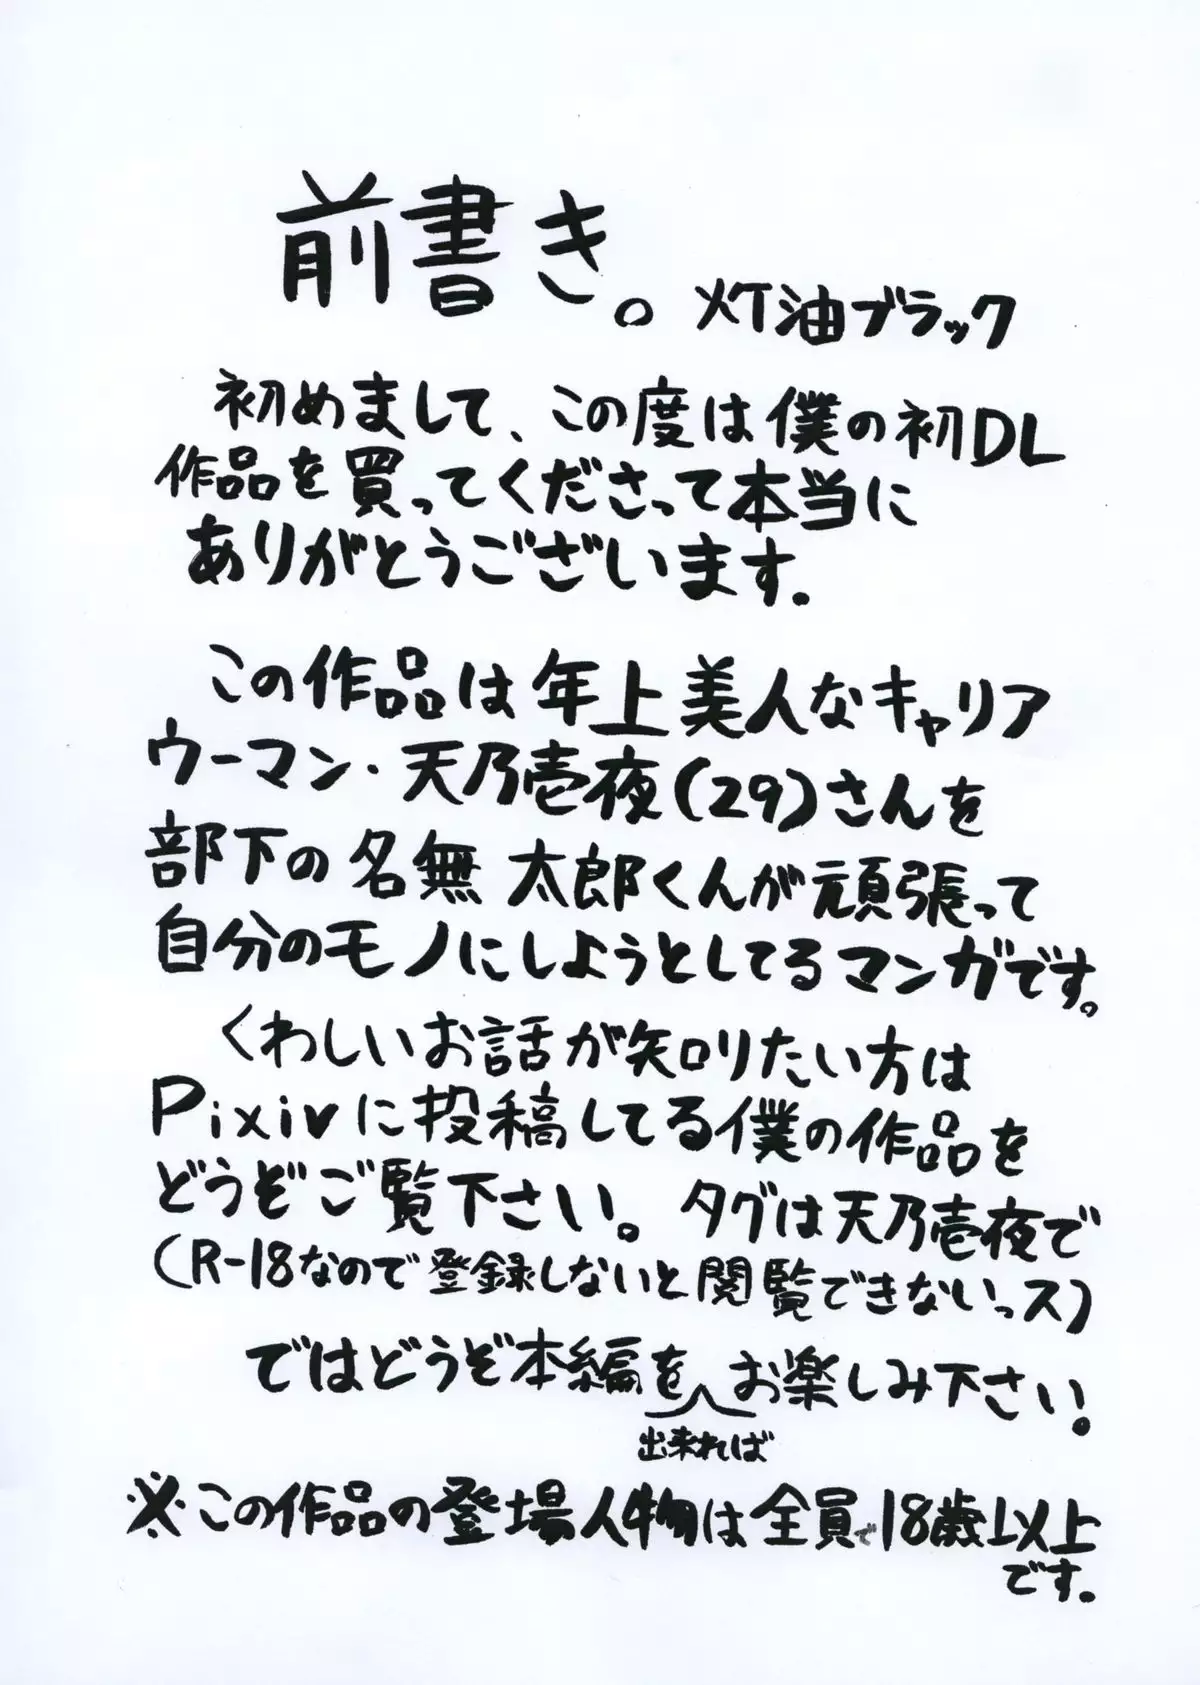 前書き。 灯油ブラック
初めまして、この度は僕の初DL
作品を買ってくださって本当に
ありがとうございます.
この作品は年上美人なキャリア
ウーマン・天乃壱夜(29)さんを
部下の名無 太郎くんが頑張って
自分のモノにしようとしてるマンガです。
くわしいお話が知りたい方は
Pixivに投稿してる僕の作品を
どうぞご覧下さい。タグは天乃壱夜で
(R-18なので登録しないと閲覧できないっス)
ではどうぞ本編をお楽しみ下さい。
出来れば
※この作品の登場人物は全員で18歳以上
です.